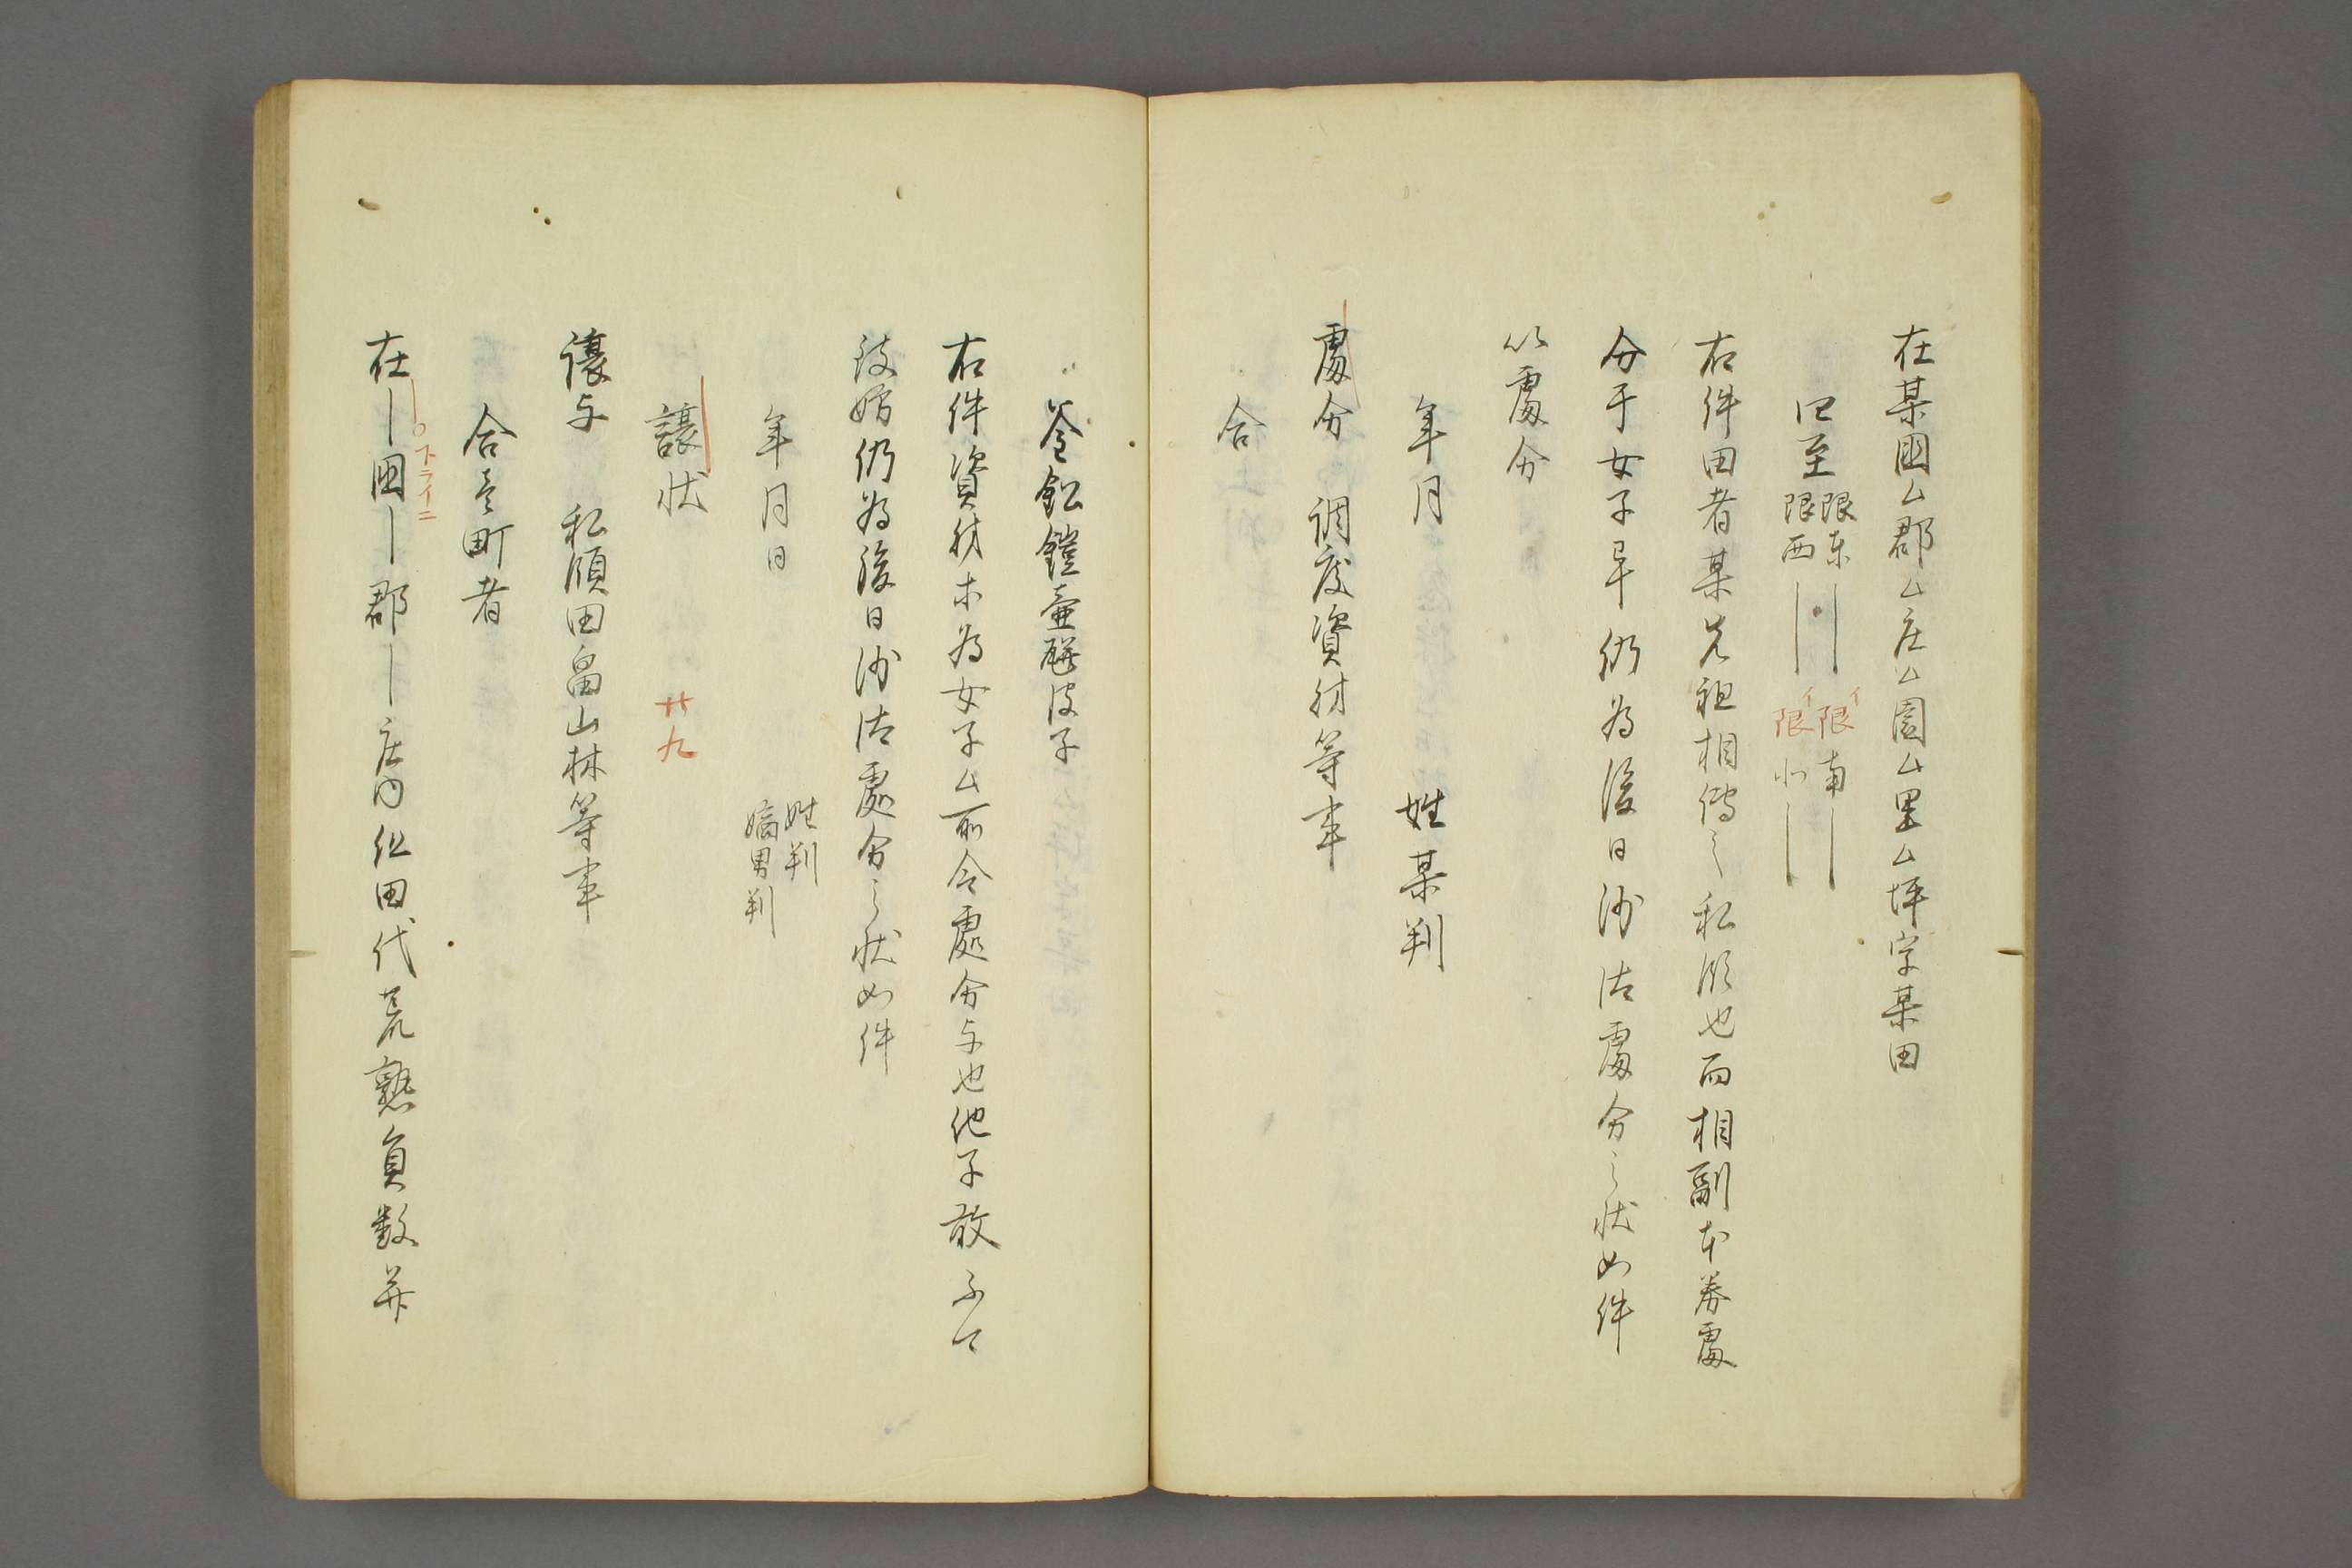 在某国ム郡ム庄ム図ム里ム坪字某田
四至 限東｜限南｜
限西｜限北｜
右件田者某先祖相傳之私領也而相副本券處
分于女子畢仍為後日沙汰處分之状如件
以處分
年月 姓某判
處分 調度資財等事
合
釜鎧壷瓶
右件資財木為女子ム所令處分与也他子敢不可
致妨仍為後日沙汰處分之状如件
年月日 姓判
嫡男判
譲状 廿九
譲与 私領田畠山林等事
合壱町者
在｜国｜郡｜庄内但田代荒熟負数并